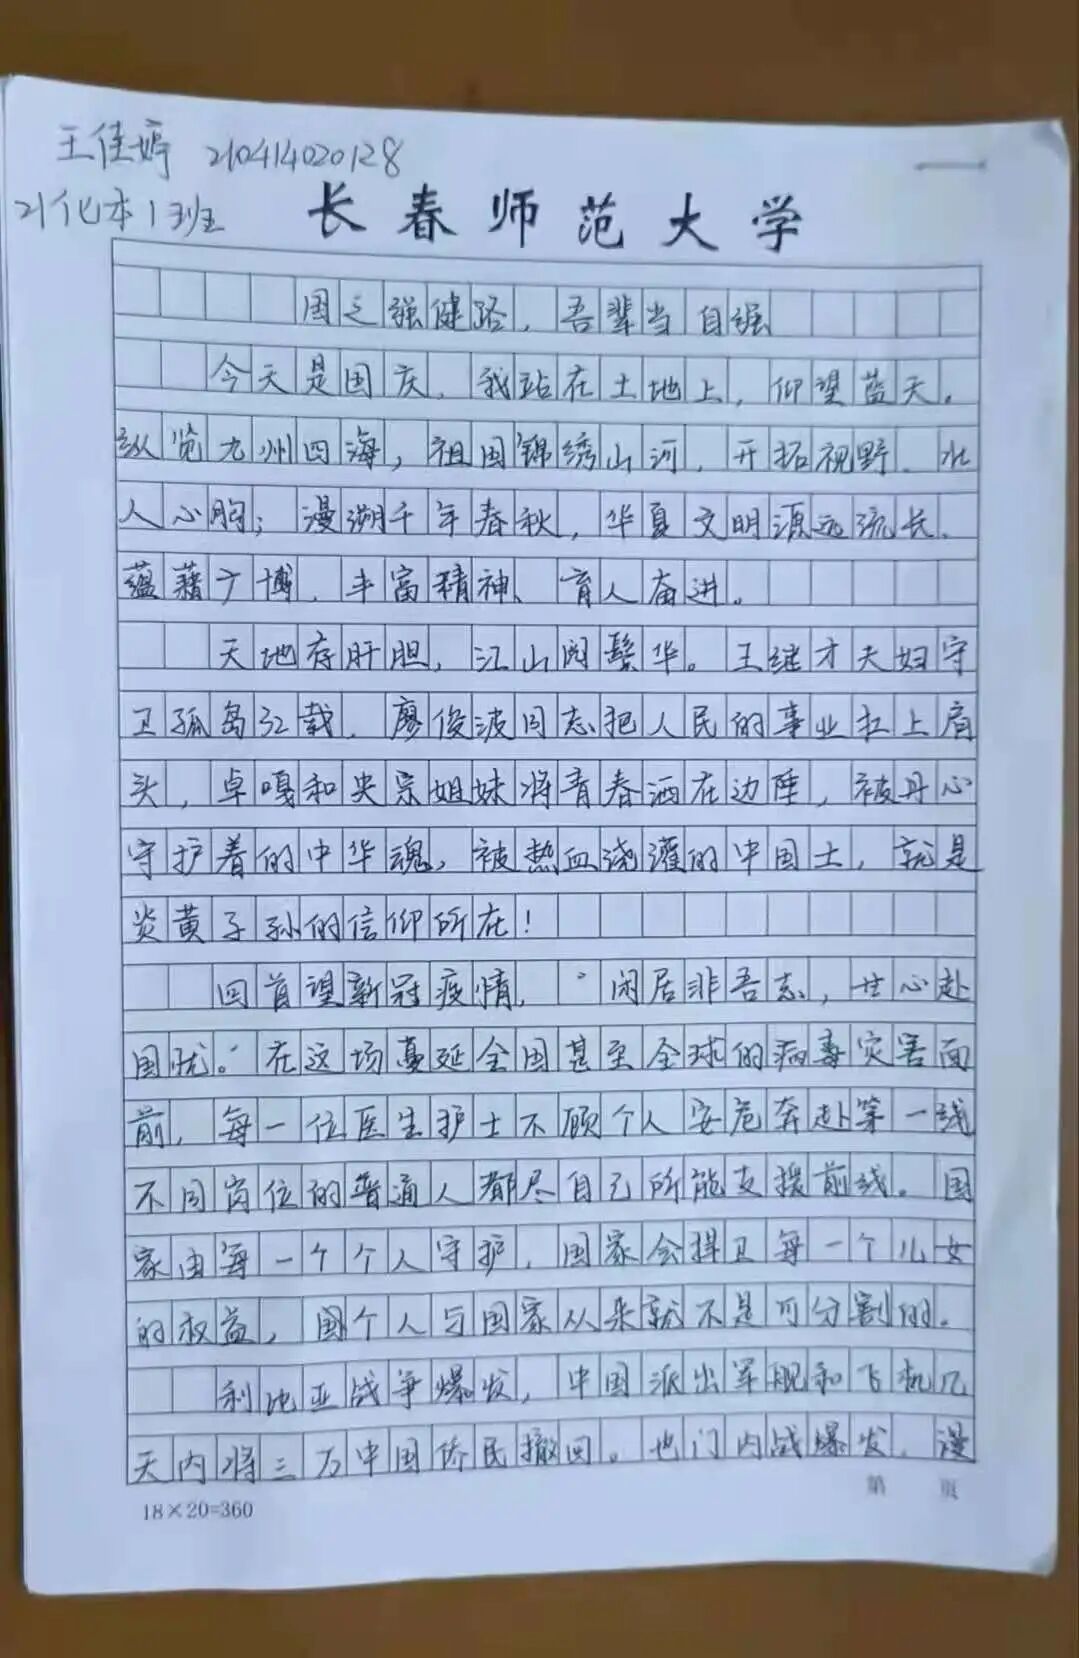 王佳婷 210414020128
21化本1班
长春师范大学
国之强健路，吾辈当自强
今天是国庆，我站在土地上，仰望蓝天。
纵览九州四海，祖国锦绣山河，开拓视野、壮
人心胸；漫溯千年春秋，华夏文明源远流长、
蕴藉广博，丰富精神、育人奋进。
天地存肝胆，江山阅鬓华。王继才夫妇守
卫孤岛32载，廖俊波同志把人民的事业扛上肩
头，卓嘎和央宗姐妹将青春洒在边陲，被丹心
守护着的中华魂，被热血浇灌的中国土，就是
炎黄子孙的信仰所在！
回首望新冠疫情，“闲居非吾志，甘心赴
国忧。”在这场蔓延全国甚至全球的病毒灾害面
前，每一位医生护士不顾个人安危奔赴第一线
不同岗位的普通人都尽自己所能支援前线。国
家由每一个个人守护，国家会捍卫每一个儿女
的权益，国个人与国家从来就不是可分割的。
利比亚战争爆发，中国派出军舰和飞机几
天内将三万中国侨民撤回。也门内战爆发，漫
18×20=360
第 页